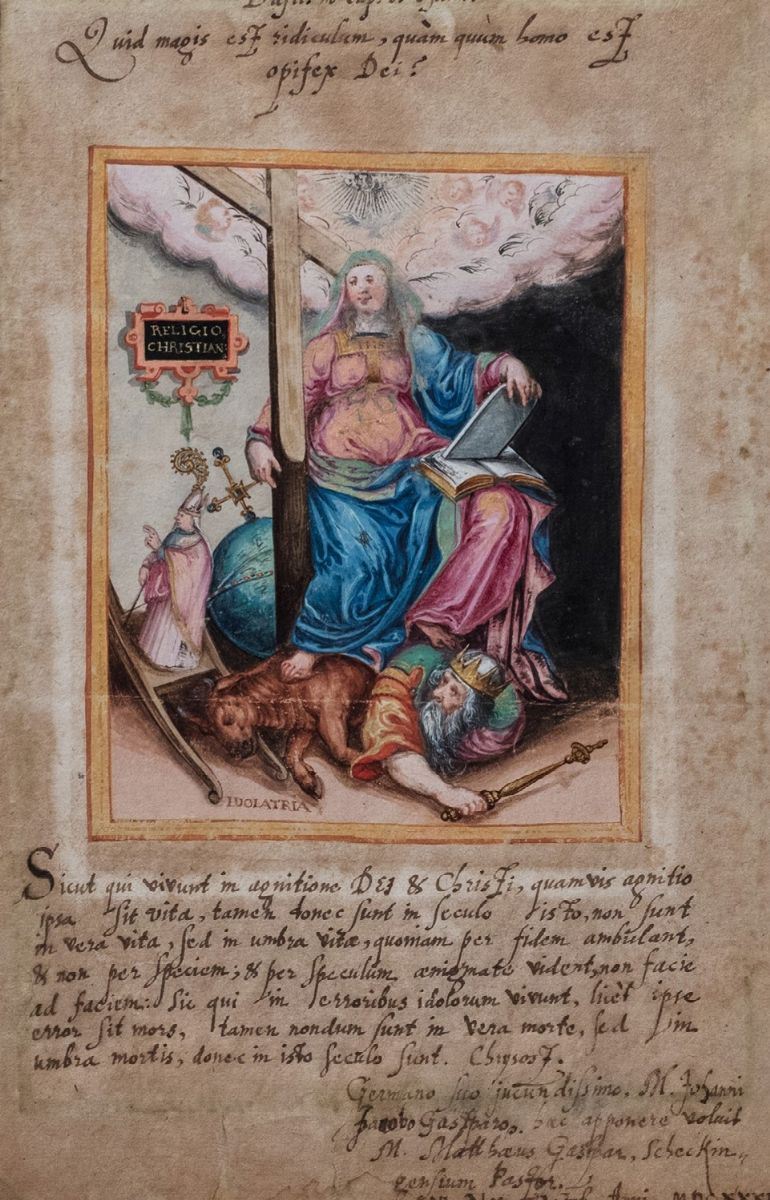 Quid magis est ridiculum, quàm quùm homo est
opifex Dei?
RELIGIO
CHRISTIAN:
IDOLATRIA
Sicut qui vivunt in agnitione DEI & Christi, quamvis agnitio
ipsa sit vita, tamen donec sunt in seculo isto, non sunt
in vera vita, sed in umbra vitæ, quoniam per fidem ambulant,
& non per speciem; & per speculum ænigmate vident, non facie
ad faciem: Sic qui in erroribus idolorum vivunt, licèt ipse
error sit mors, tamen nondum sunt in vera morte, sed in
umbra mortis, donec in isto seculo sunt. Chrysost.
Germano suo jucundissimo, M. Johanni
Jacobo Gasparo, hæc apponere voluit
M. Matthæus Gaspar, Scheckin-
gensium Pastor.